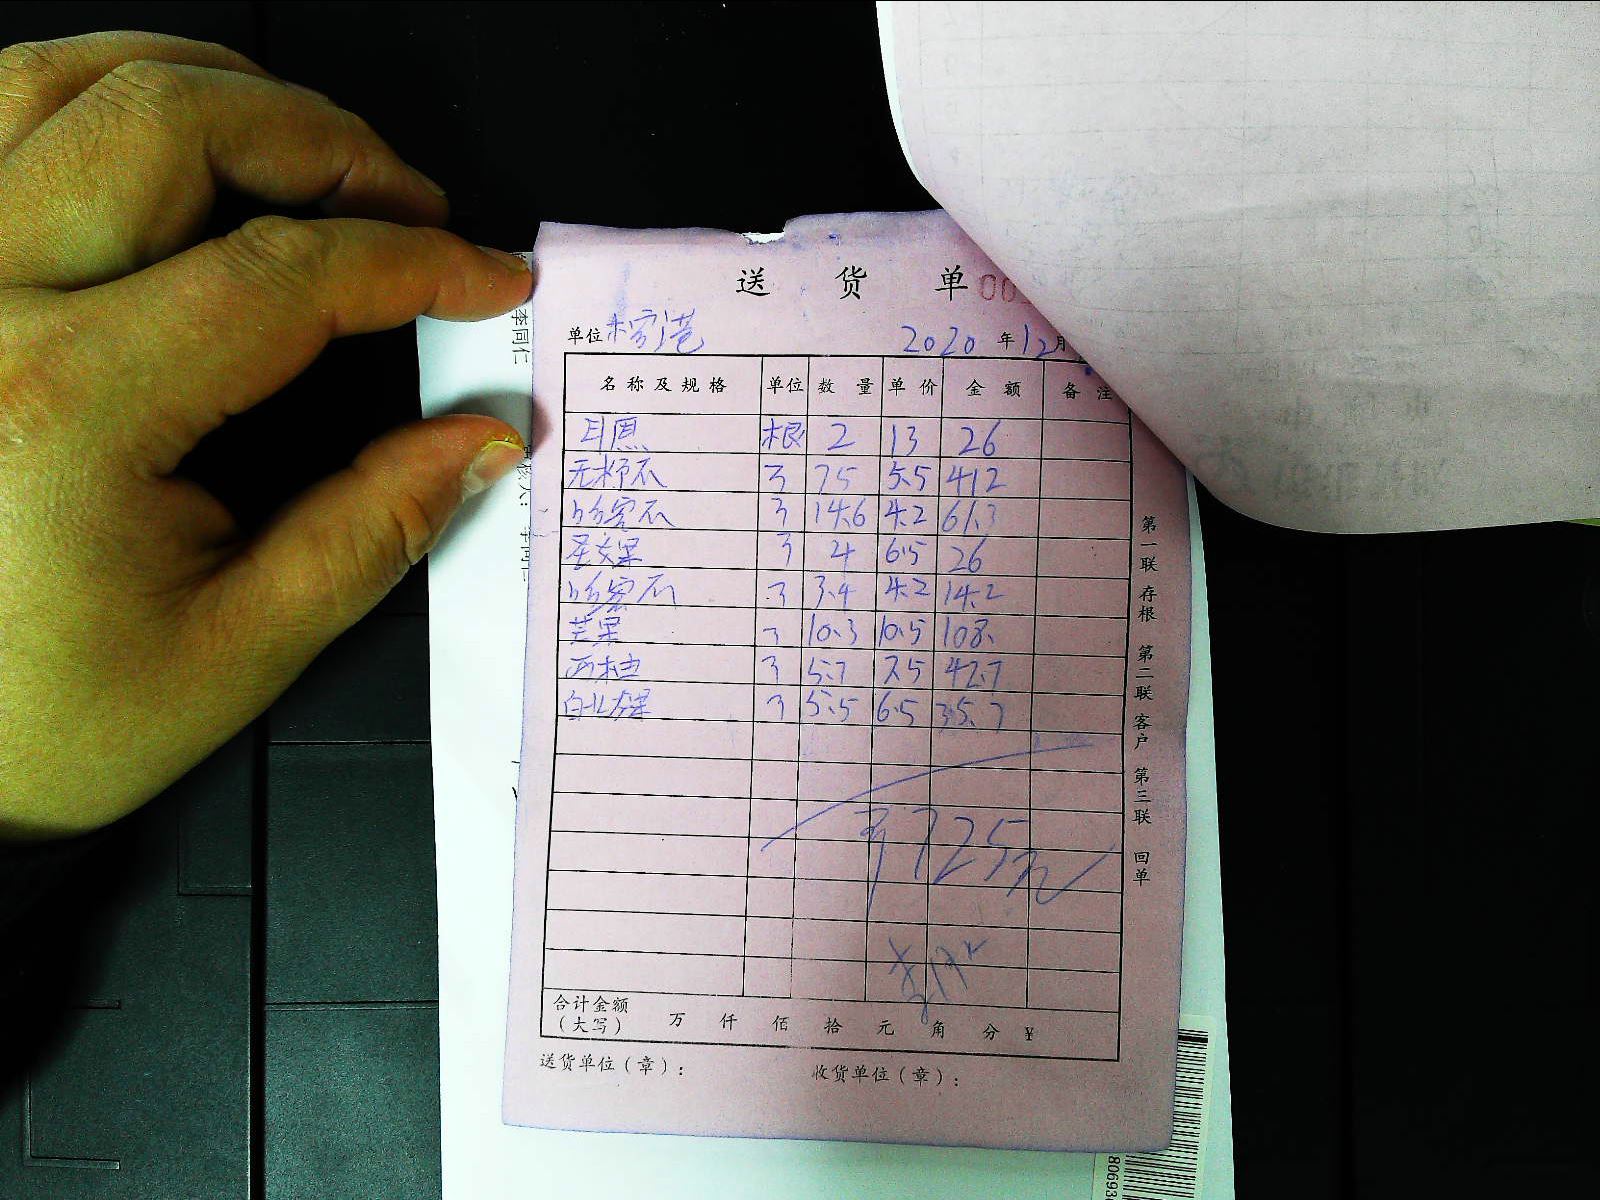 送 货 单 00
单位 2020 年 12 月
名称及规格 单位 数量 单价 金额 备注
根 2 13 26
75 5.5 412
哈密瓜 14.6 4.2 61.3
圣女果 4 6.5 26
哈密瓜 3.4 4.2 14.2
芒果 10.3 10.5 108.
西柚 5.7 7.5 42.7
5.5 6.5 35.7
725元
合计金额
(大写) 万 仟 佰 拾 元 角 分 ¥
送货单位(章): 收货单位(章):
第一联 存根 第二联 客户 第三联 回单
李同仁
80693